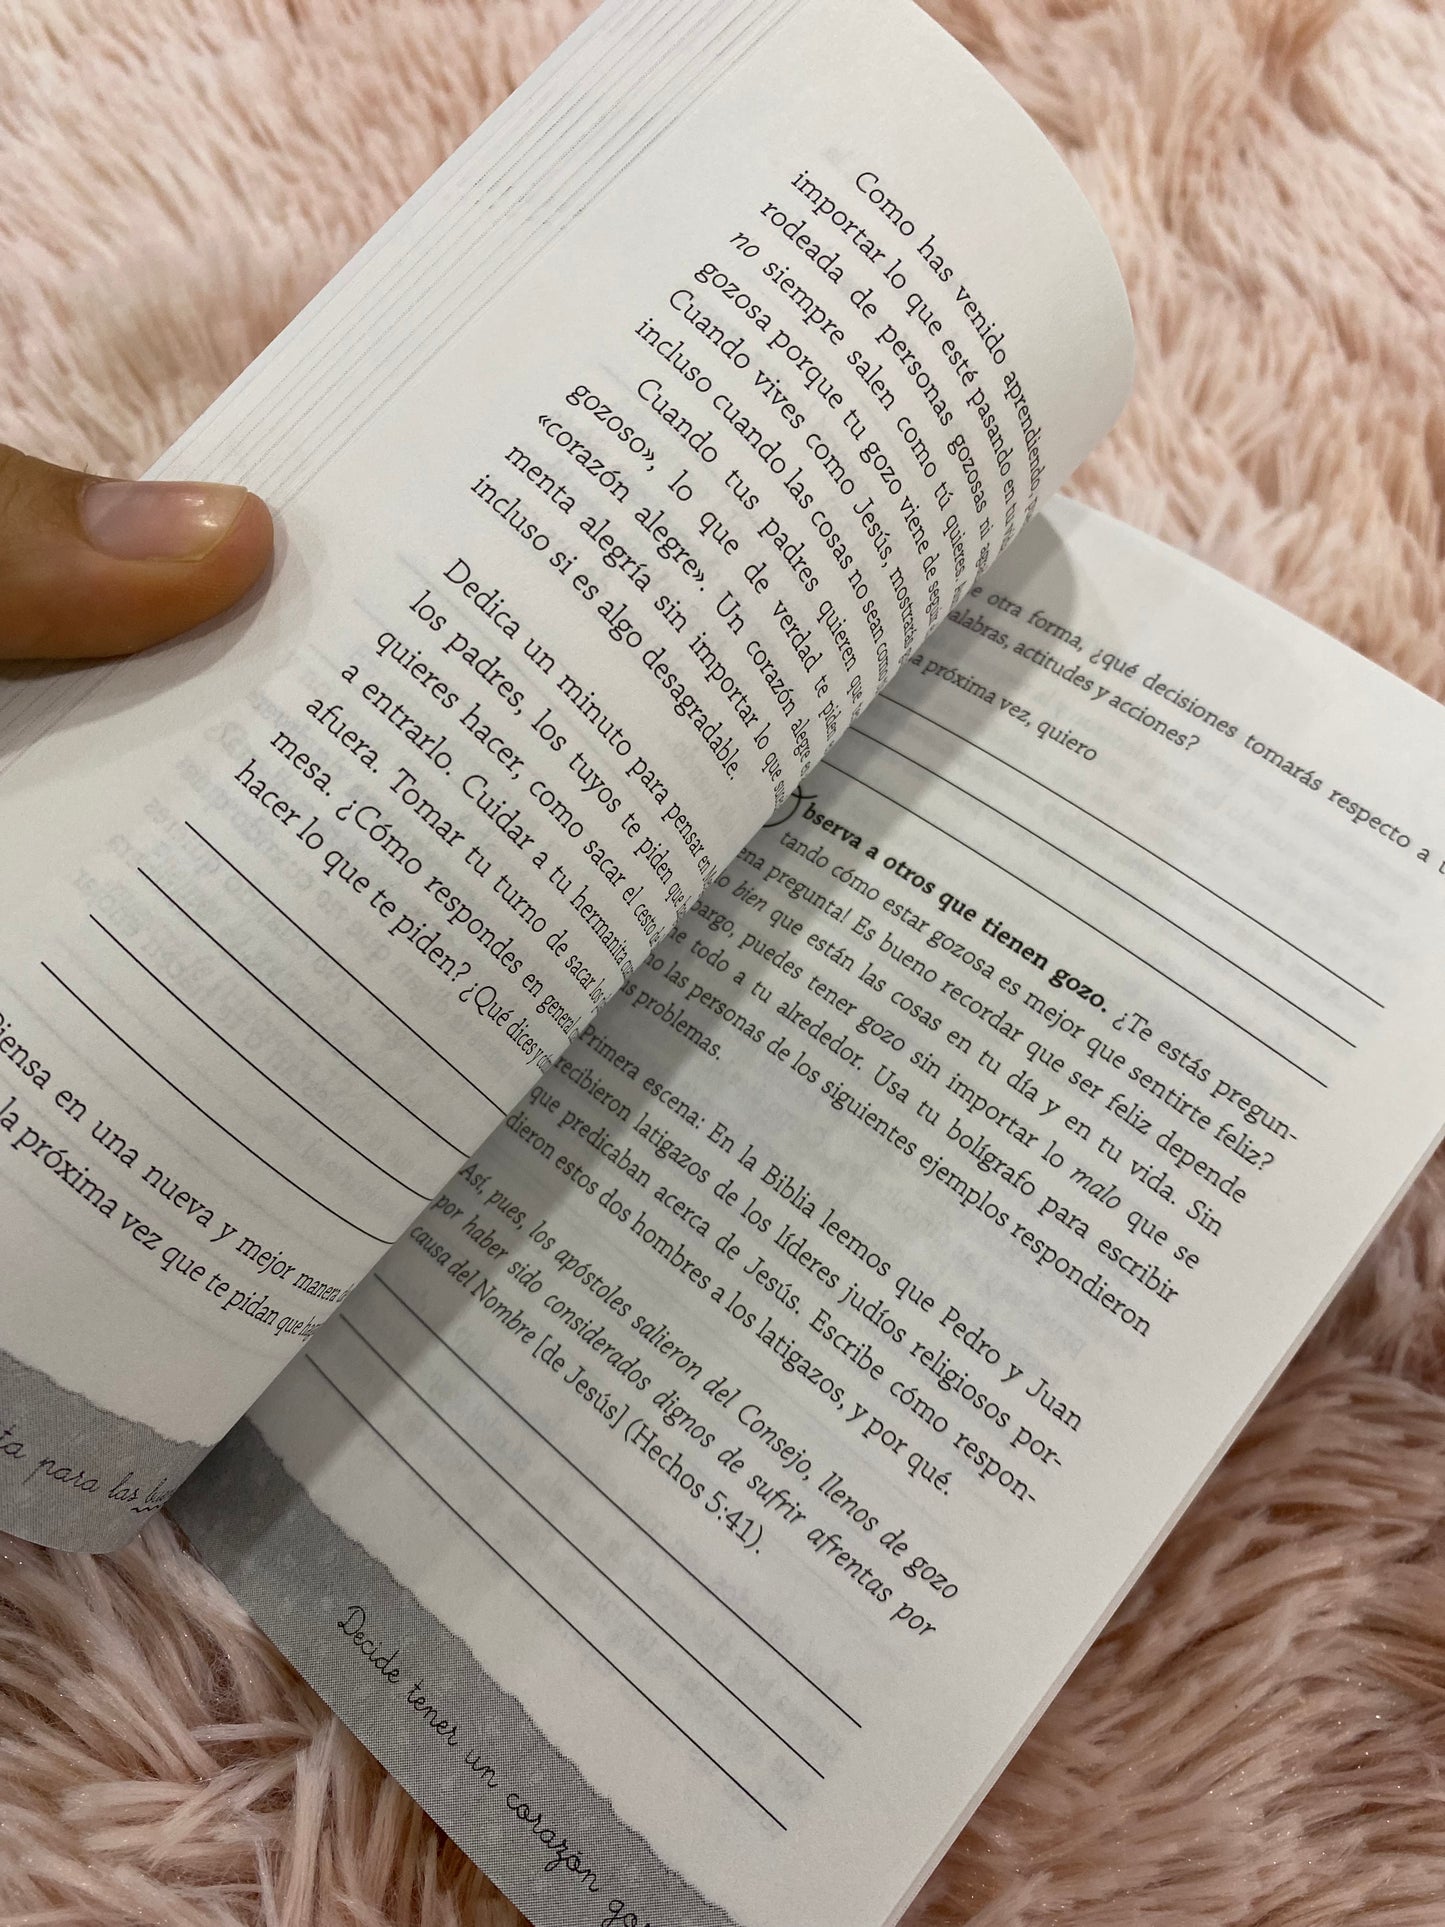 Como has venido aprendiendo,
importar lo que esté pasando en tu
rodeada de personas gozosas ni
no siempre salen como tú quieres.
gozosa porque tu gozo viene de
Cuando vives como Jesús, mostrarás
incluso cuando las cosas no sean como
Cuando tus padres quieren que
gozoso», lo que de verdad te piden
«corazón alegre». Un corazón alegre
menta alegría sin importar lo que
incluso si es algo desagradable.
Dedica un minuto para pensar en
los padres, los tuyos te piden que
quieres hacer, como sacar el cesto de
a entrarlo. Cuidar a tu hermanita
afuera. Tomar tu turno de sacar los
mesa. ¿Cómo respondes en general
hacer lo que te piden? ¿Qué dices y
Piensa en una nueva y mejor manera
la próxima vez que te pidan que
para las
e otra forma, ¿qué decisiones tomarás respecto a
alabras, actitudes y acciones?
a próxima vez, quiero
bserva a otros que tienen gozo. ¿Te estás pregun-
tando cómo estar gozosa es mejor que sentirte feliz?
ena pregunta! Es bueno recordar que ser feliz depende
lo bien que están las cosas en tu día y en tu vida. Sin
bargo, puedes tener gozo sin importar lo malo que se
ne todo a tu alrededor. Usa tu bolígrafo para escribir
mo las personas de los siguientes ejemplos respondieron
us problemas.
Primera escena: En la Biblia leemos que Pedro y Juan
recibieron latigazos de los líderes judíos religiosos por-
que predicaban acerca de Jesús. Escribe cómo respon-
dieron estos dos hombres a los latigazos, y por qué.
Así, pues, los apóstoles salieron del Consejo, llenos de gozo
por haber sido considerados dignos de sufrir afrentas por
causa del Nombre [de Jesús] (Hechos 5:41).
Decide tener un corazón go